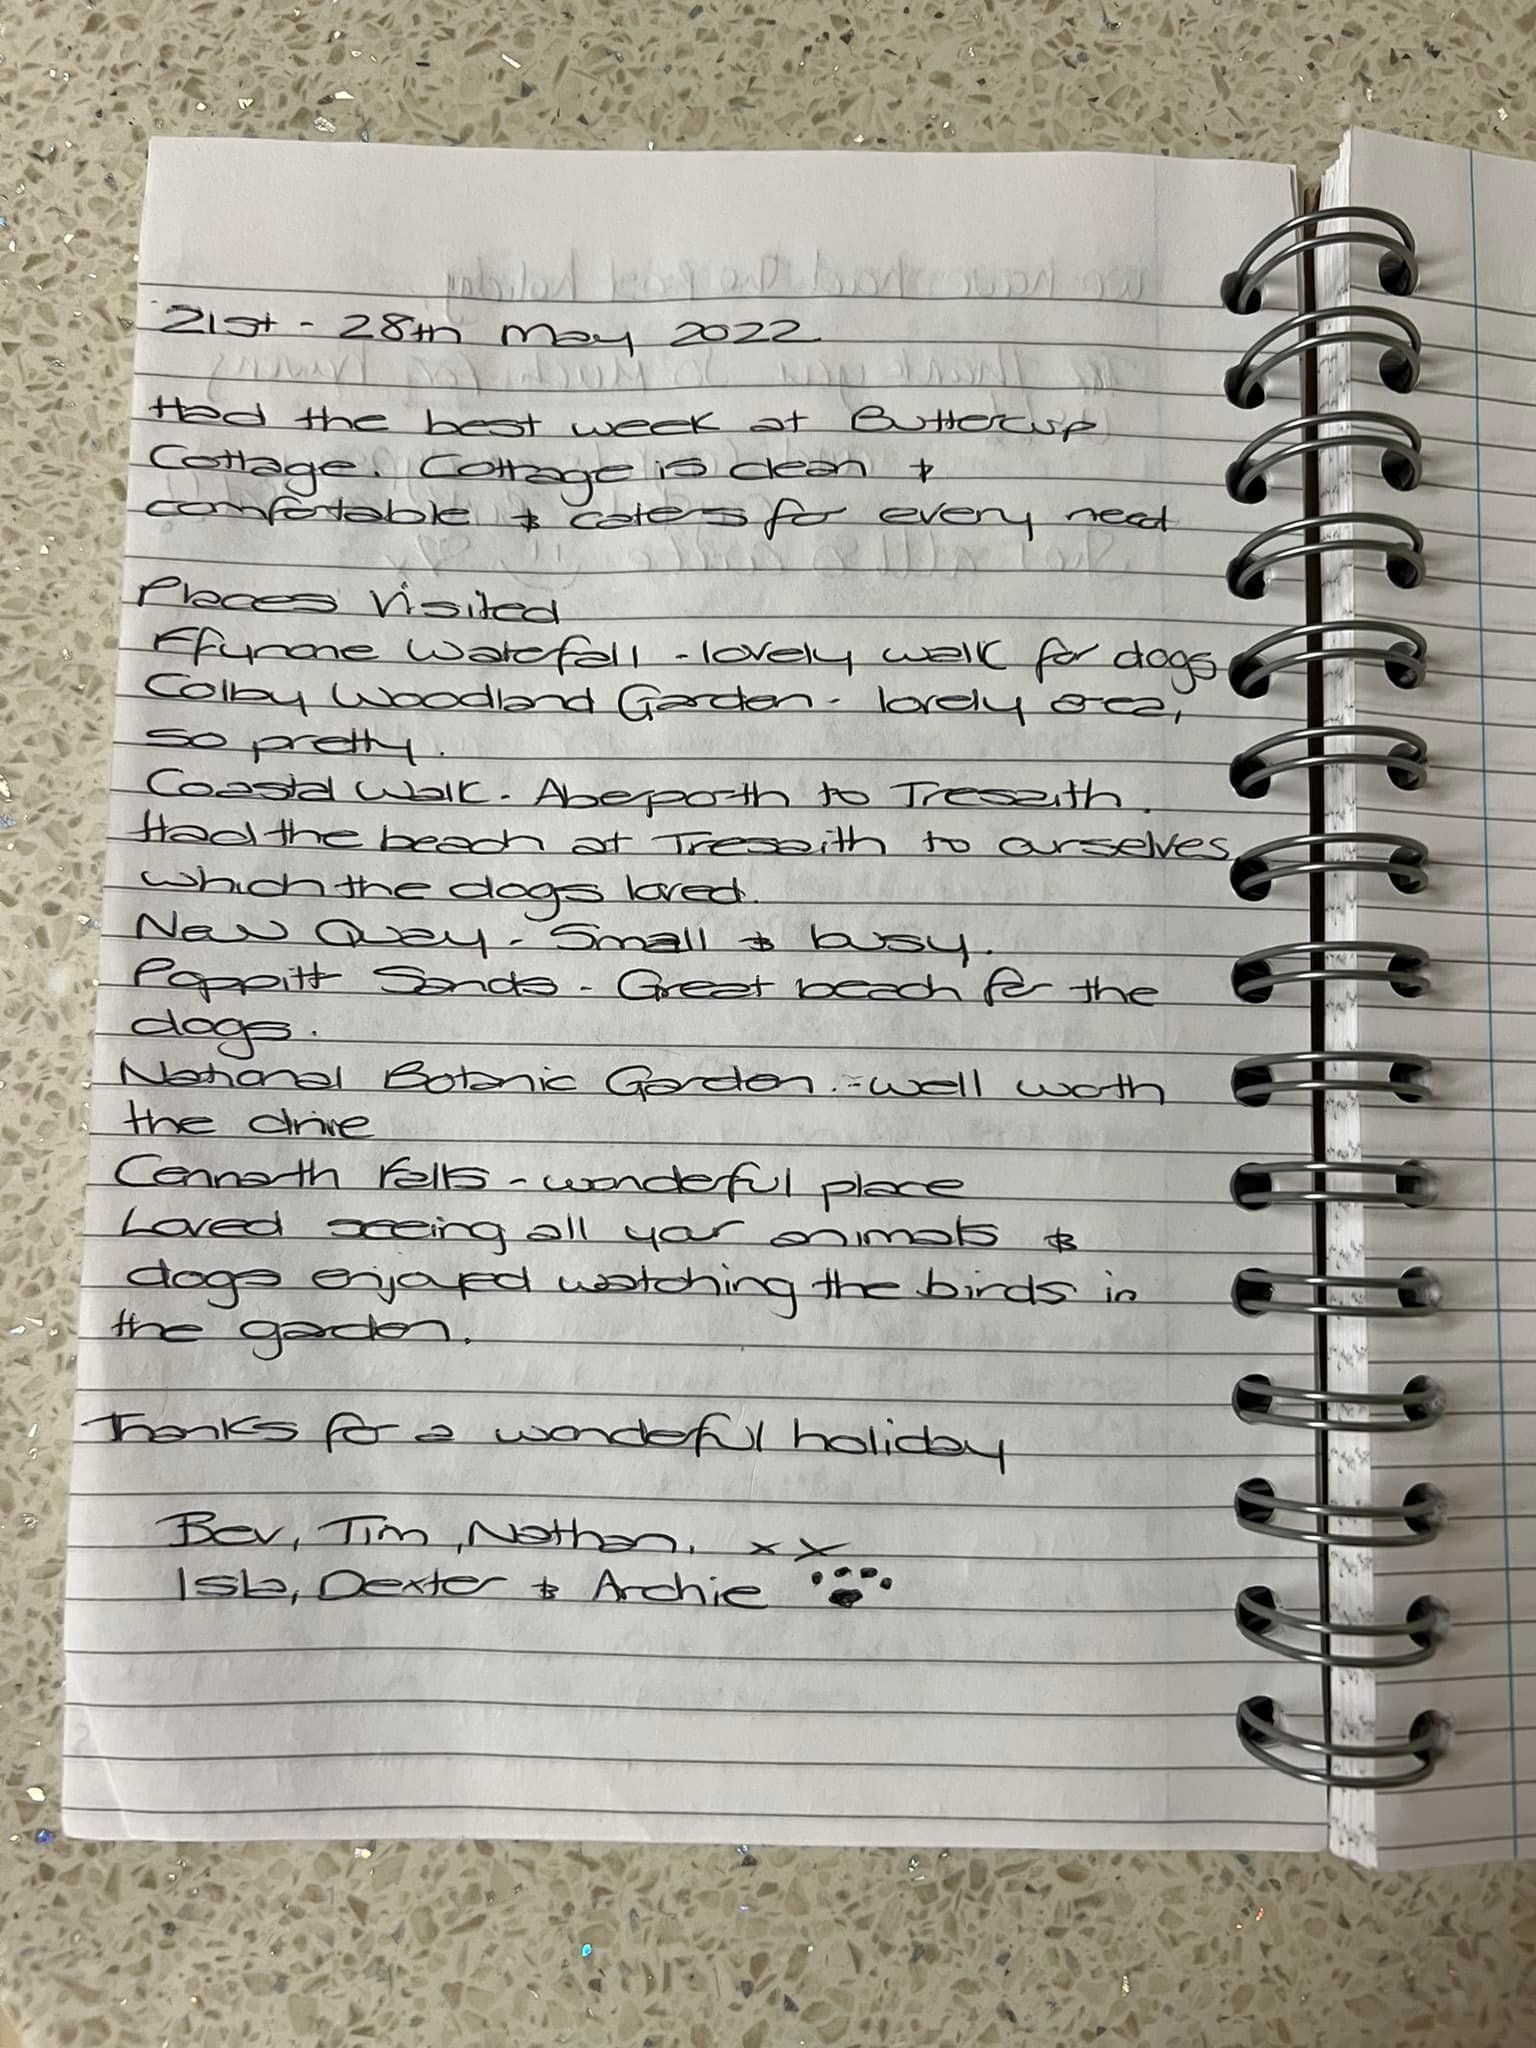 21st - 28th May 2022
Had the best week at Buttercup
Cottage. Cottage is clean &
comfortable & caters for every need
Places Visited
Ffynone Waterfall - lovely walk for dogs
Colby Woodland Garden - lovely area,
so pretty.
Coastal Walk - Aberporth to Tresaith.
Had the beach at Tresaith to ourselves
which the dogs loved.
New Quay - Small & busy.
Poppitt Sands - Great beach for the
dogs.
National Botanic Garden - well worth
the drive
Cennarth Falls - wonderful place
Loved seeing all your animals &
dogs enjoyed watching the birds in
the garden.
Thanks for a wonderful holiday
Bev, Tim, Nathan. xx
Isla, Dexter & Archie